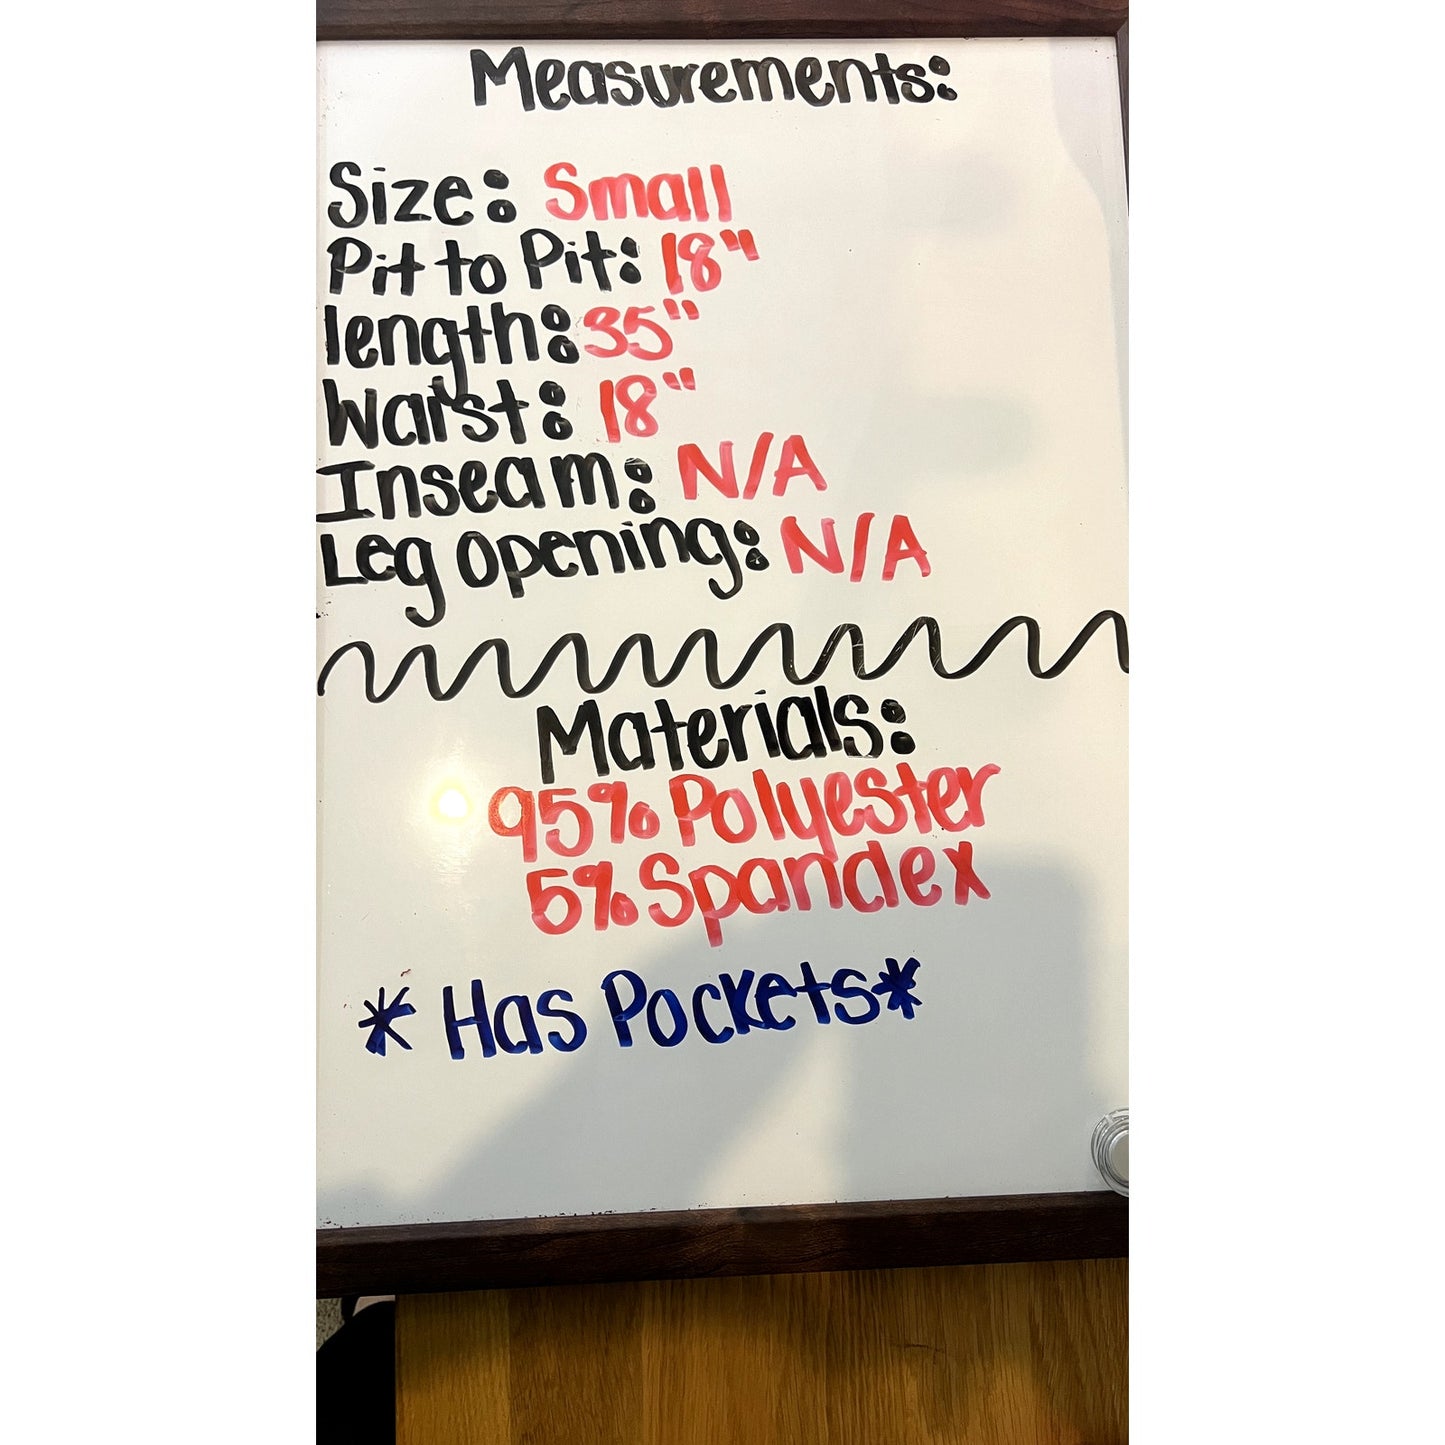 Measurements:
Size: Small
Pit to Pit: 18"
length: 35"
Waist: 18"
Inseam: N/A
Leg opening: N/A
Materials:
95% Polyester
5% Spandex
* Has Pockets*